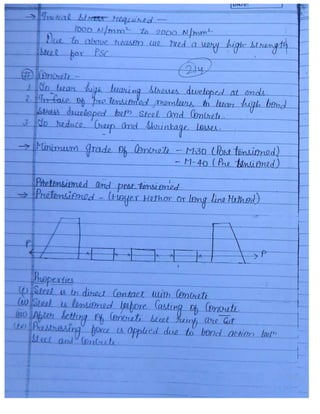 → Initial stress required —
1000 N/mm² to 2000 N/mm²
Due to above reason we need a very high strength
steel for PSC
214
Concrete -
1. To bear high bearing stresses developed at ends.
2. In case of pre tensioned members to bear high bond
stress developed betⁿ steel and concrete.
3. To reduce creep and shrinkage losses.
→ Minimum grade of concrete - M30 (Post tensioned)
- M-40 (Pre tensioned)
Pretensioned and post tensioned
→ Pretensioned - (Hoyer Method or long line Method)
P
P
Properties
(i) Steel is in direct contact with concrete
(ii) Steel is tensioned before casting of concrete
(iii) After setting of concrete steel are cut
(iv) Prestressing force is applied due to bond action betⁿ
steel and concrete